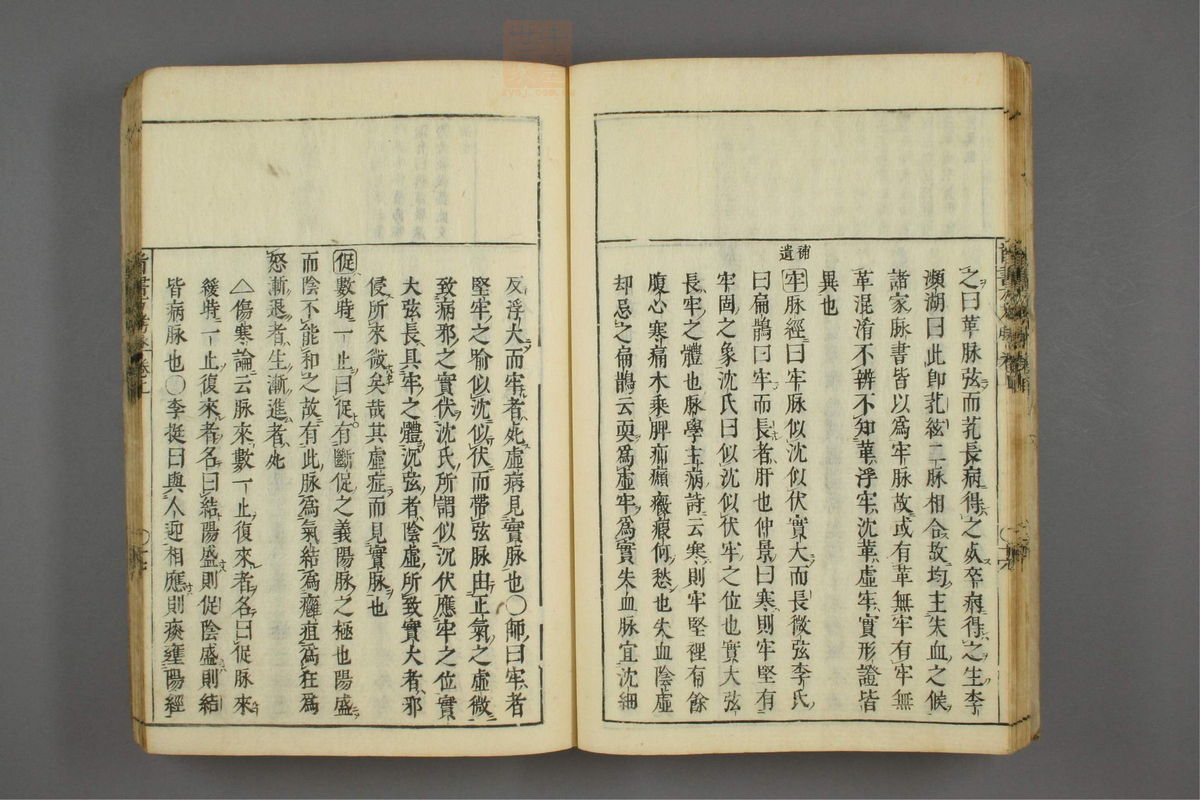 之曰革脉弦而芤長病得之死卒病得之生李
瀕湖曰此卽芤絃二脉相合故均主失血之候
諸家脉書皆以爲牢脉故或有革無牢有牢無
革混淆不辨不知革浮牢沈革虛牢實形證皆
異也
補遺
牢脉經曰牢脉似沈似伏實大而長微弦李氏
曰扁鵲曰牢而長者肝也仲景曰寒則牢堅有
牢固之象沈氏曰似沈似伏牢之位也實大弦
長牢之體也脉學主病詩云寒則牢堅裡有餘
腹心寒痛木乘脾疝㿗癥瘕何愁也失血陰虛
却忌之扁鵲云耎爲虛牢爲實失血脉宜沈細
反浮大而牢者死虛病見實脉也○師曰牢者
堅牢之喻似沈似伏而帶弦脉由正氣之虛微
致病邪之實伏沈氏所謂似沉伏應牢之位實
大弦長具牢之體沉弦者陰虛所致實大者邪
侵所來微矣哉其虛症而見實脉也
促數時一止曰促有斷促之義陽脉之極也陽盛
而陰不能和之故有此脉爲氣結爲癰疽爲狂爲
怒漸退者生漸進者死
△傷寒論云脉來數一止復來者名曰促脉來
緩時一止復來者名曰結陽盛則促陰盛則結
皆病脉也○李挺曰與人迎相應則瘀壅陽經